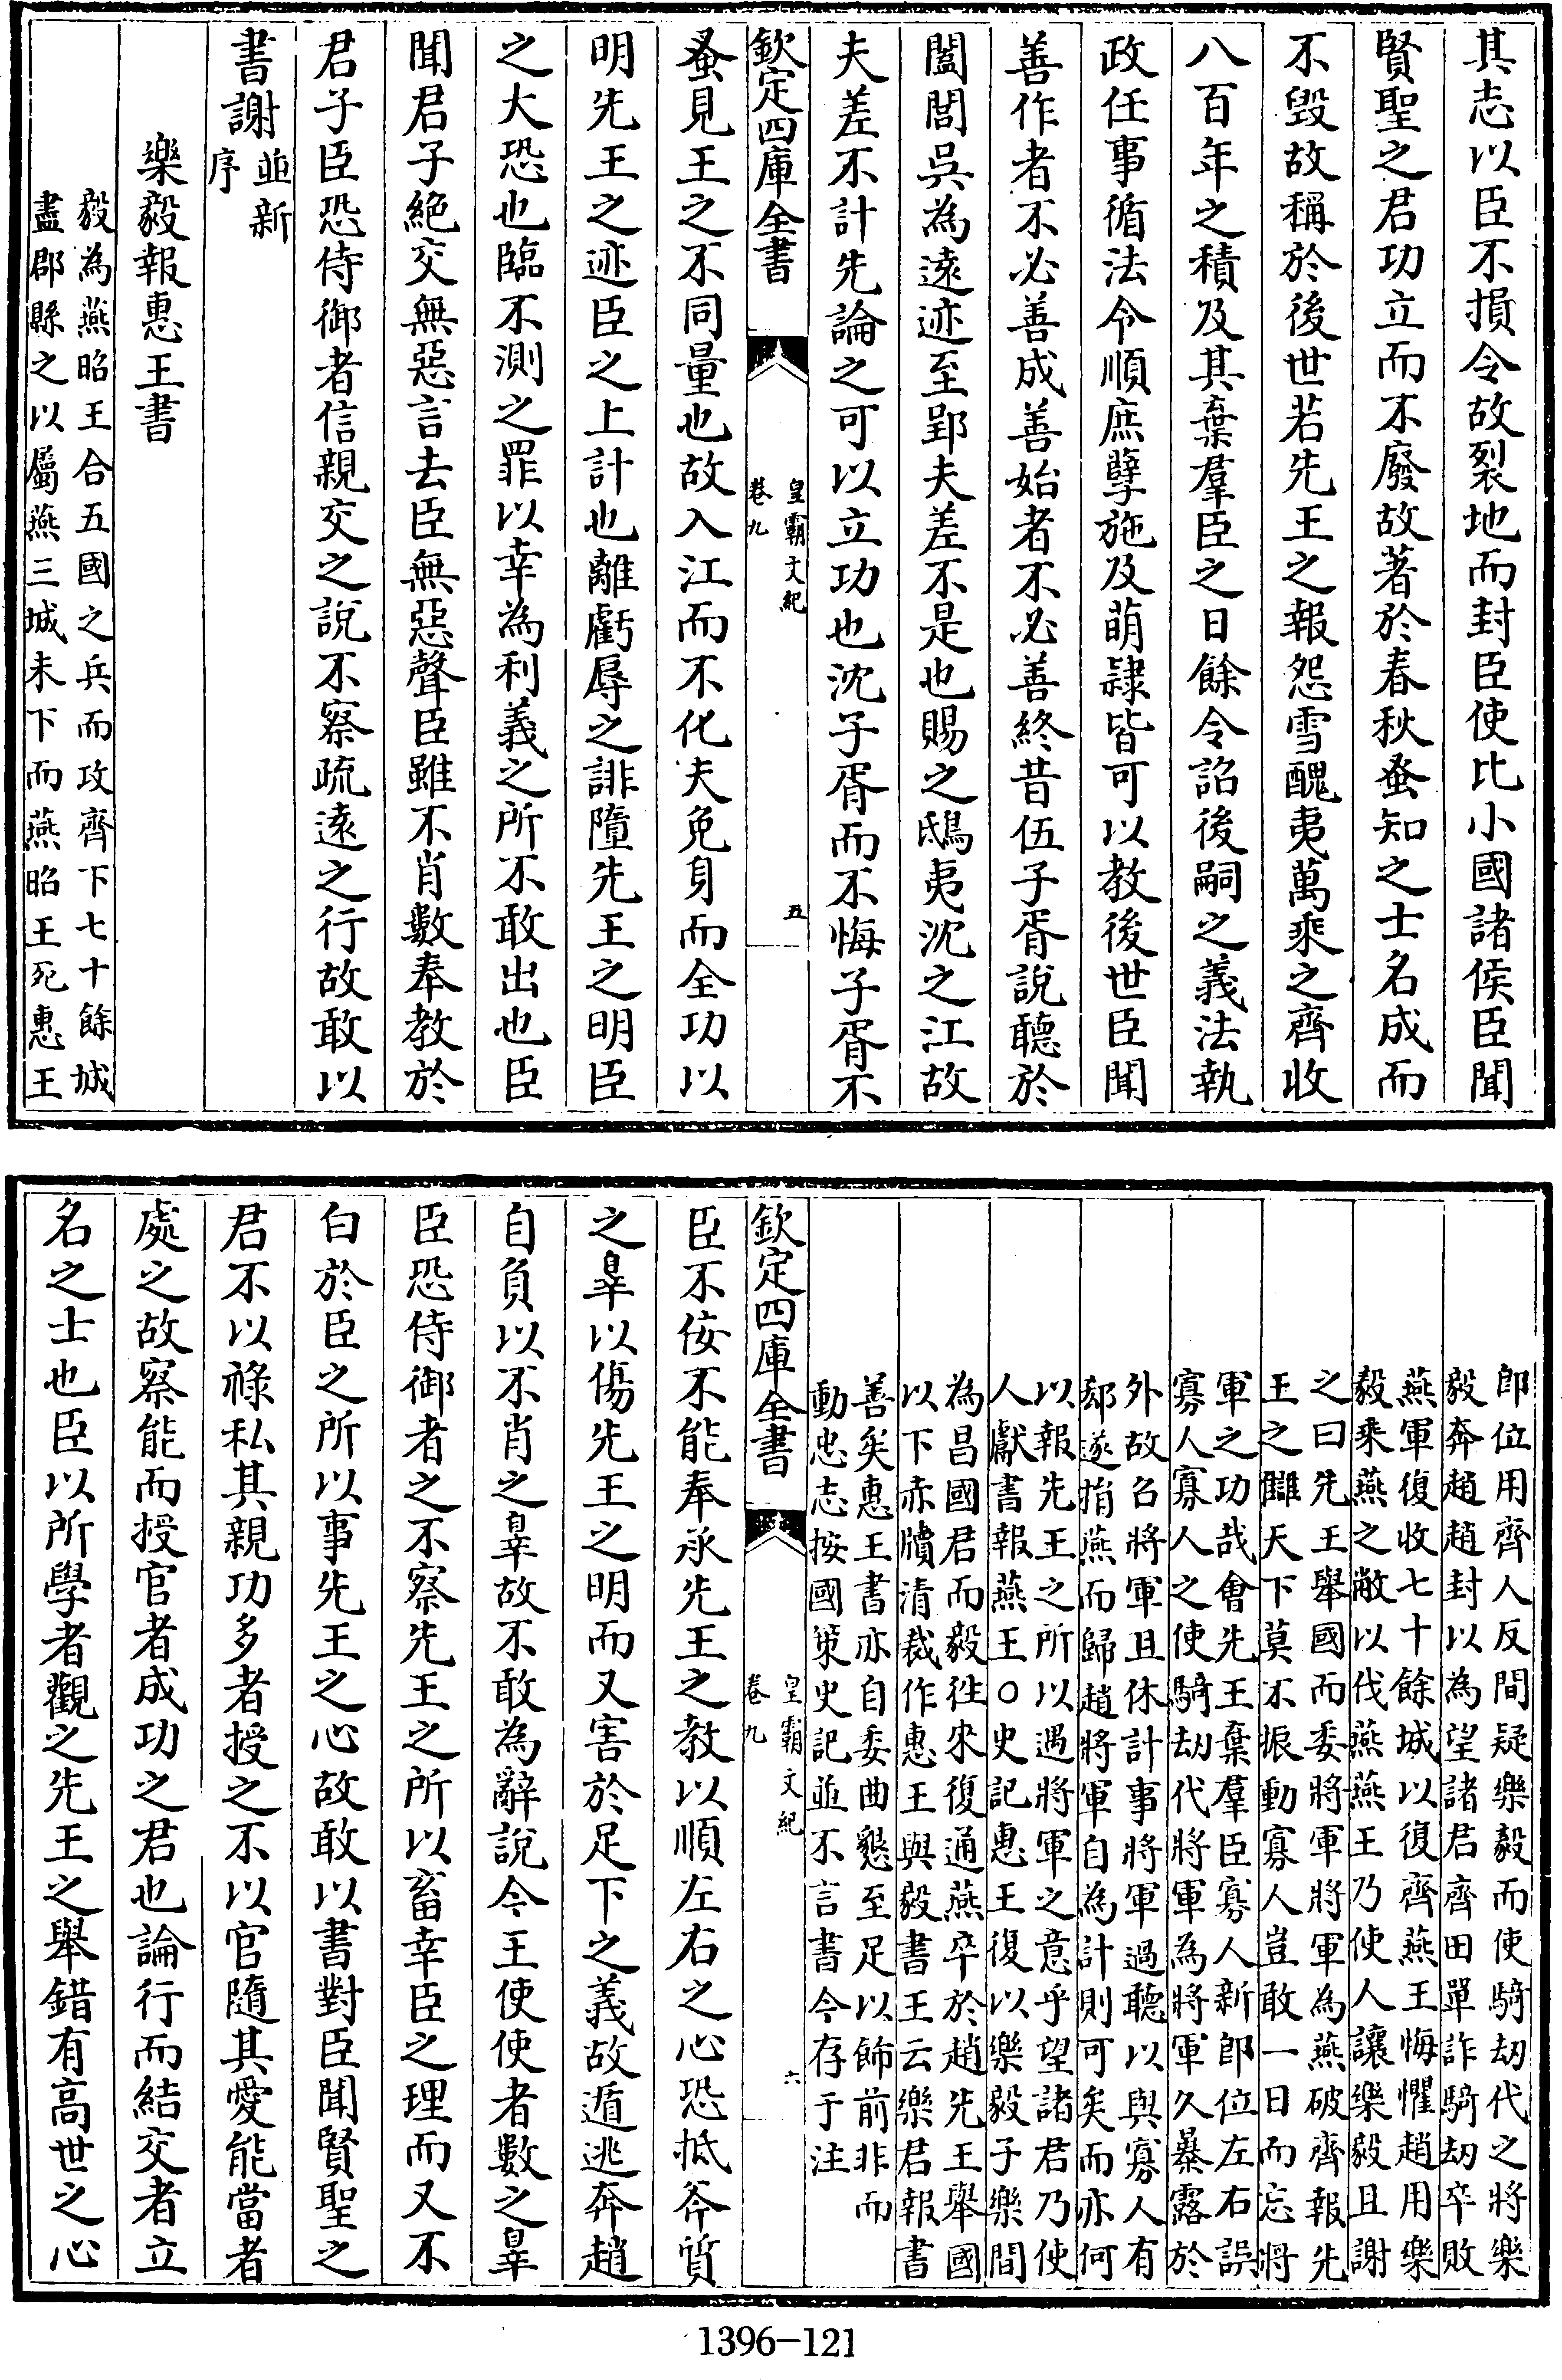 其志以臣不損令故裂地而封臣使比小國諸侯臣聞
賢聖之君功立而不廢故著於春秋蚤知之士名成而
不毁故稱於後世若先王之報怨雪醜夷萬乘之齊收
八百年之積及其棄羣臣之日餘令詔後嗣之義法執
政任事循法令順庶孽施及萌隷皆可以教後世臣聞
善作者不必善成善始者不必善終昔伍子胥說聽於
闔閭吳為遠迹至郢夫差不是也賜之鴟夷沈之江故
夫差不計先論之可以立功也沈子胥而不悔子胥不
欽定四庫全書
皇霸文紀
卷九
五
蚤見王之不同量也故入江而不化夫免身而全功以
明先王之迹臣之上計也離虧辱之誹墮先王之明臣
之大恐也臨不測之罪以幸為利義之所不敢出也臣
聞君子絶交無惡言去臣無惡聲臣雖不肖數奉教於
君子臣恐侍御者信親交之說不察疏遠之行故敢以
書謝並新
序
樂毅報惠王書
毅為燕昭王合五國之兵而攻齊下七十餘城
盡郡縣之以屬燕三城未下而燕昭王死惠王
即位用齊人反間疑樂毅而使騎劫代之將樂
毅奔趙趙封以為望諸君齊田單詐騎劫卒敗
燕軍復收七十餘城以復齊燕王悔懼趙用樂
毅乘燕之敝以伐燕燕王乃使人讓樂毅且謝
之曰先王舉國而委將軍將軍為燕破齊報先
王之讎天下莫不振動寡人豈敢一日而忘將
軍之功哉會先王棄羣臣寡人新即位左右誤
寡人寡人之使騎劫代將軍為將軍久暴露於
外故召將軍且休計事將軍過聽以與寡人有
郄遂捐燕而歸趙將軍自為計則可矣而亦何
以報先王之所以遇將軍之意乎望諸君乃使
人獻書報燕王○史記惠王復以樂毅子樂間
為昌國君而毅往來復通燕卒於趙先王舉國
以下赤牘清裁作惠王與毅書王云樂君報書
善矣惠王書亦自委曲懇至足以飾前非而
動忠志按國策史記並不言書今存于注
欽定四庫全書
皇霸文紀
卷九
六
臣不佞不能奉承先王之教以順左右之心恐抵斧質
之辠以傷先王之明而又害於足下之義故遁逃奔趙
自負以不肖之辠故不敢為辭說今王使使者數之辠
臣恐侍御者之不察先王之所以畜幸臣之理而又不
白於臣之所以事先王之心故敢以書對臣聞賢聖之
君不以祿私其親功多者授之不以官隨其愛能當者
處之故察能而授官者成功之君也論行而結交者立
名之士也臣以所學者觀之先王之舉錯有高世之心
1396-121